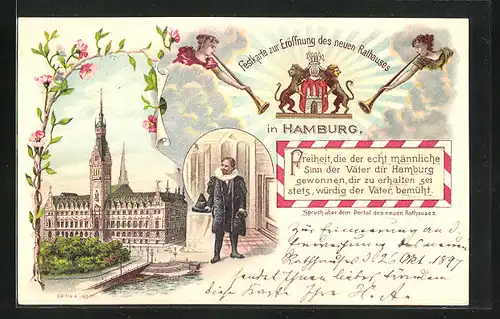 Festkarte zur Eröffnung des neuen Rathauses
in HAMBURG.
Freiheit, die der echt männliche
Sinn der Väter dir Hamburg
gewonnen, dir zu erhalten sei
stets, würdig der Väter, bemüht.
Spruch über dem Portal des neuen Rathauses.
Zur Erinnerung an d.
des neuen
Rathhauses d. 26 Okt. 1897
sendet Ihnen
diese Karte Ihre H. A.